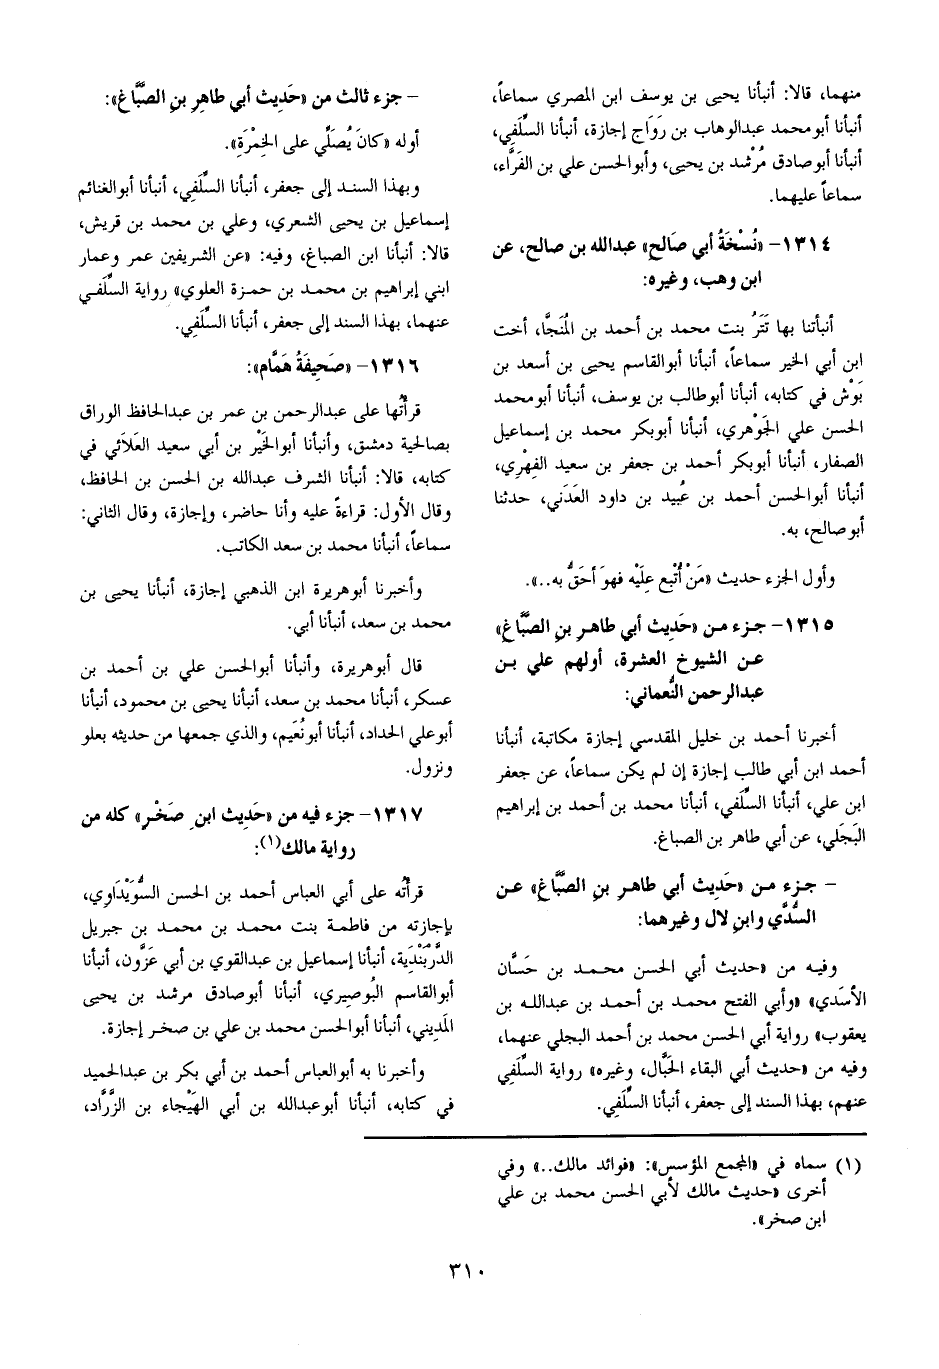 منهما، قالا: أنبأنا يحيى بن يوسف ابن المصري سماعاً،
أنبأنا أبومحمد عبدالوهاب بن رَوَاج إجازة، أنبأنا السِّلَفي،
أنبأنا أبوصادق مُرْشد بن يحيى، وأبوالحسن علي بن الفَرَّاء،
سماعاً عليهما.
١٣١٤- «نُسْخَةُ أبي صَالح» عبدالله بن صالح، عن
ابن وهب، وغيره:
أنبأتنا بها تَتَرُ بنت محمد بن أحمد بن المُنَجَّا، أخت
ابن أبي الخير سماعاً، أنبأنا أبوالقاسم يحيى بن أسعد بن
بَوْش في كتابه، أنبأنا أبوطالب بن يوسف، أنبأنا أبومحمد
الحسن علي الجَوْهري، أنبأنا أبوبكر محمد بن إسماعيل
الصفار، أنبأنا أبوبكر أحمد بن جعفر بن سعيد الفِهْري،
أنبأنا أبوالحسن أحمد بن عُبيد بن داود العَدَني، حدثنا
أبوصالح، به.
وأول الجزء حديث «مَنْ أُتْبِع عليْه فهوَ أحَقُّ به..».
١٣١٥- جزء من «حَدِيث أبي طاهرِ بنِ الصَّبَّاغ»
عن الشيوخ العشرة، أولهم علي بن
عبدالرحمن النُّعماني:
أخبرنا أحمد بن خليل المقدسي إجازة مكاتبة، أنبأنا
أحمد ابن أبي طالب إجازة إن لم يكن سماعاً، عن جعفر
ابن علي، أنبأنا السِّلَفي، أنبأنا محمد بن أحمد بن إبراهيم
البَجَلي، عن أبي طاهر بن الصباغ.
- جزء من «حَدِيث أبي طاهرِ بنِ الصَّبَّاغ» عن
السُّدَّي وابنِ لال وغيرهما:
وفيه من «حديث أبي الحسن محمد بن حَسَّان
الأسَدي» «وأبي الفتح محمد بن أحمد بن عبدالله بن
يعقوب» رواية أبي الحسن محمد بن أحمد البجلي عنهما،
وفيه من «حديث أبي البقاء الحَبَّال، وغيره» رواية السِّلَفي
عنهم، بهذا السند إلى جعفر، أنبأنا السِّلَفي.
- جزء ثالث من «حَدِيث أبي طاهِرِ بنِ الصَّبَّاغ»:
أوله «كانَ يُصَلِّي على الخِمْرَةِ».
وبهذا السند إلى جعفر، أنبأنا السِّلَفي، أنبأنا أبوالغنائم
إسماعيل بن يحيى الشعري، وعلي بن محمد بن قريش،
قالا: أنبأنا ابن الصباغ، وفيه: «عن الشريفين عمر وعمار
ابني إبراهيم بن محمد بن حمزة العلوي» رواية السِّلَفي
عنهما، بهذا السند إلى جعفر، أنبأنا السِّلَفي.
١٣١٦- «صَحِيفَةُ هَمَّام»:
قرأتُها على عبدالرحمن بن عمر بن عبدالحافظ الوراق
بصالحية دمشق، وأنبأنا أبوالخَيْر بن أبي سعيد العَلَائي في
كتابه، قالا: أنبأنا الشرف عبدالله بن الحسن بن الحافظ،
وقال الأول: قراءةً عليه وأنا حاضر، وإجازة، وقال الثاني:
سماعاً، أنبأنا محمد بن سعد الكاتب.
وأخبرنا أبوهريرة ابن الذهبي إجازة، أنبأنا يحيى بن
محمد بن سعد، أنبأنا أبي.
قال أبوهريرة، وأنبأنا أبوالحسن علي بن أحمد بن
عسكر، أنبأنا محمد بن سعد، أنبأنا يحيى بن محمود، أنبأنا
أبوعلي الحداد، أنبأنا أبونُعَيم، والذي جمعها من حديثه بعلو
ونزول.
١٣١٧- جزء فيه من «حَدِيث ابنِ صَخْرٍ» كله من
رواية مالك(١):
قرأتُه على أبي العباس أحمد بن الحسن السُّوَيْداوِي،
بإجازته من فاطمة بنت محمد بن محمد بن جبريل
الدَّرْبَنْدِية، أنبأنا إسماعيل بن عبدالقوي بن أبي عَزُّون، أنبأنا
أبوالقاسم البُوصيري، أنبأنا أبوصادق مرشد بن يحيى
المَديني، أنبأنا أبوالحسن محمد بن علي بن صخر إجازة.
وأخبرنا به أبوالعباس أحمد بن أبي بكر بن عبدالحميد
في كتابه، أنبأنا أبوعبدالله بن أبي الهَيْجاء بن الزَّرَّاد،
(١) سماه في «المجمع المؤسس»: «فوائد مالك..» وفي
أخرى «حديث مالك لأبي الحسن محمد بن علي
ابن صخر».
٣١٠